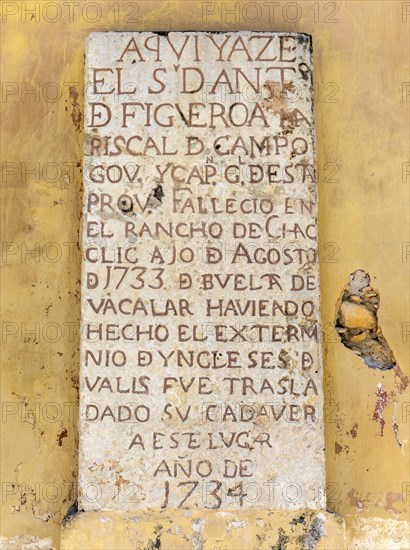 AQVI YAZE
EL Sᴿ DANTᵒ
D FIGVEROA MA
RISCAL D CAMPO
GOVᴿ Y CAPᴺ Gᴸ DESTA
PROVᴬ FALLECIO EN
EL RANCHO DE CHAC
CLIC A 10 D AGOSTO
D 1733 D BVELTA DE
VACALAR HAVIENDO
HECHO EL EXTERM
NIO D YNGLESES D
VALIS FVE TRASLA
DADO SV CADAVER
A ESTE LVGAR
AÑO DE
1734